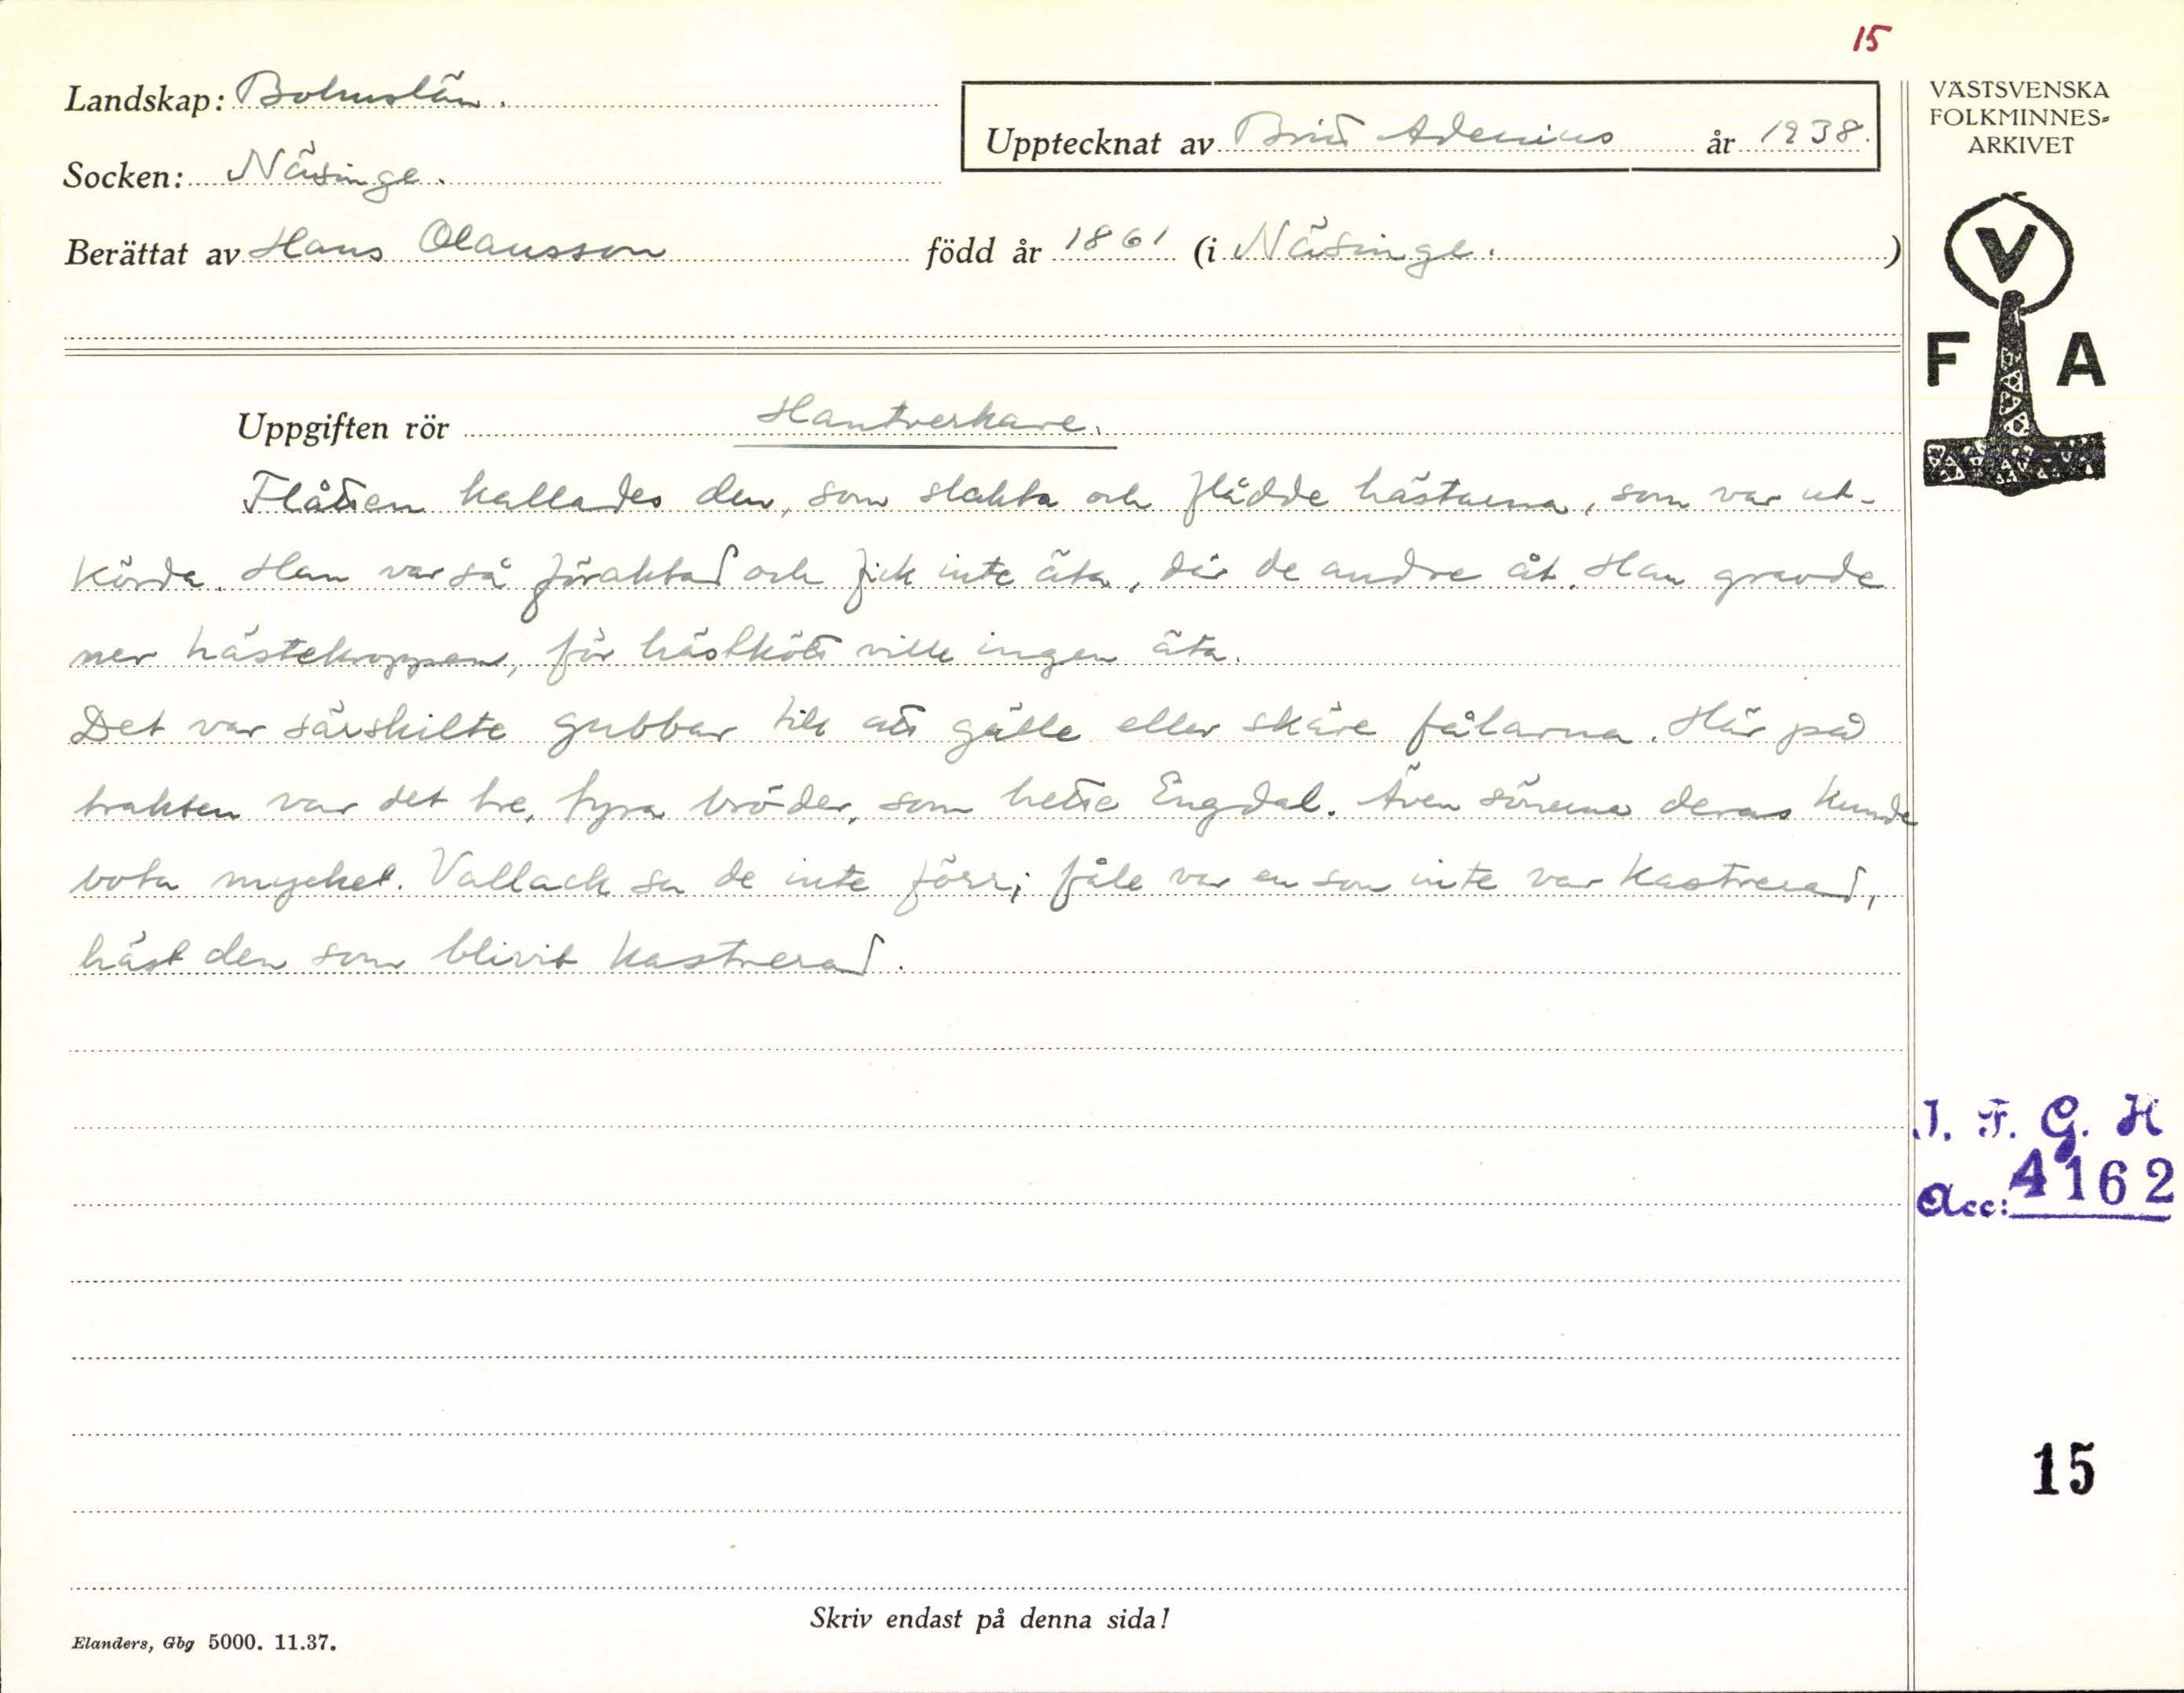 15
Landskap: Bohuslän.
Upptecknat av Britt Adenius år 1938.
VÄSTSVENSKA
FOLKMINNES=
ARKIVET
Socken: Näsinge.
Berättat av Hans Olausson född år 1861 (i Näsinge. )
V
F A
Uppgiften rör Hantverkare.
Flåttien kallades den, som slakta och flådde hästarna, som var ut-
körda. Han var så föraktad och fick inte äta, där de andre åt. Han gravde
ner hästekroppen, för hästkött ville ingen äta.
Det var särskilte gubbar till att gälle eller skäre fålarna. Här på
trakten var det tre, fyra bröder, som hette Engdal. Även sönerna deras kunde
bota mycket. Vallack sa de inte förr; fåle var en som inte var kastrerad,
häst den som blivit kastrerad.
I. F. G. H
Acc: 4162
15
Skriv endast på denna sida!
Elanders, Gbg 5000. 11.37.